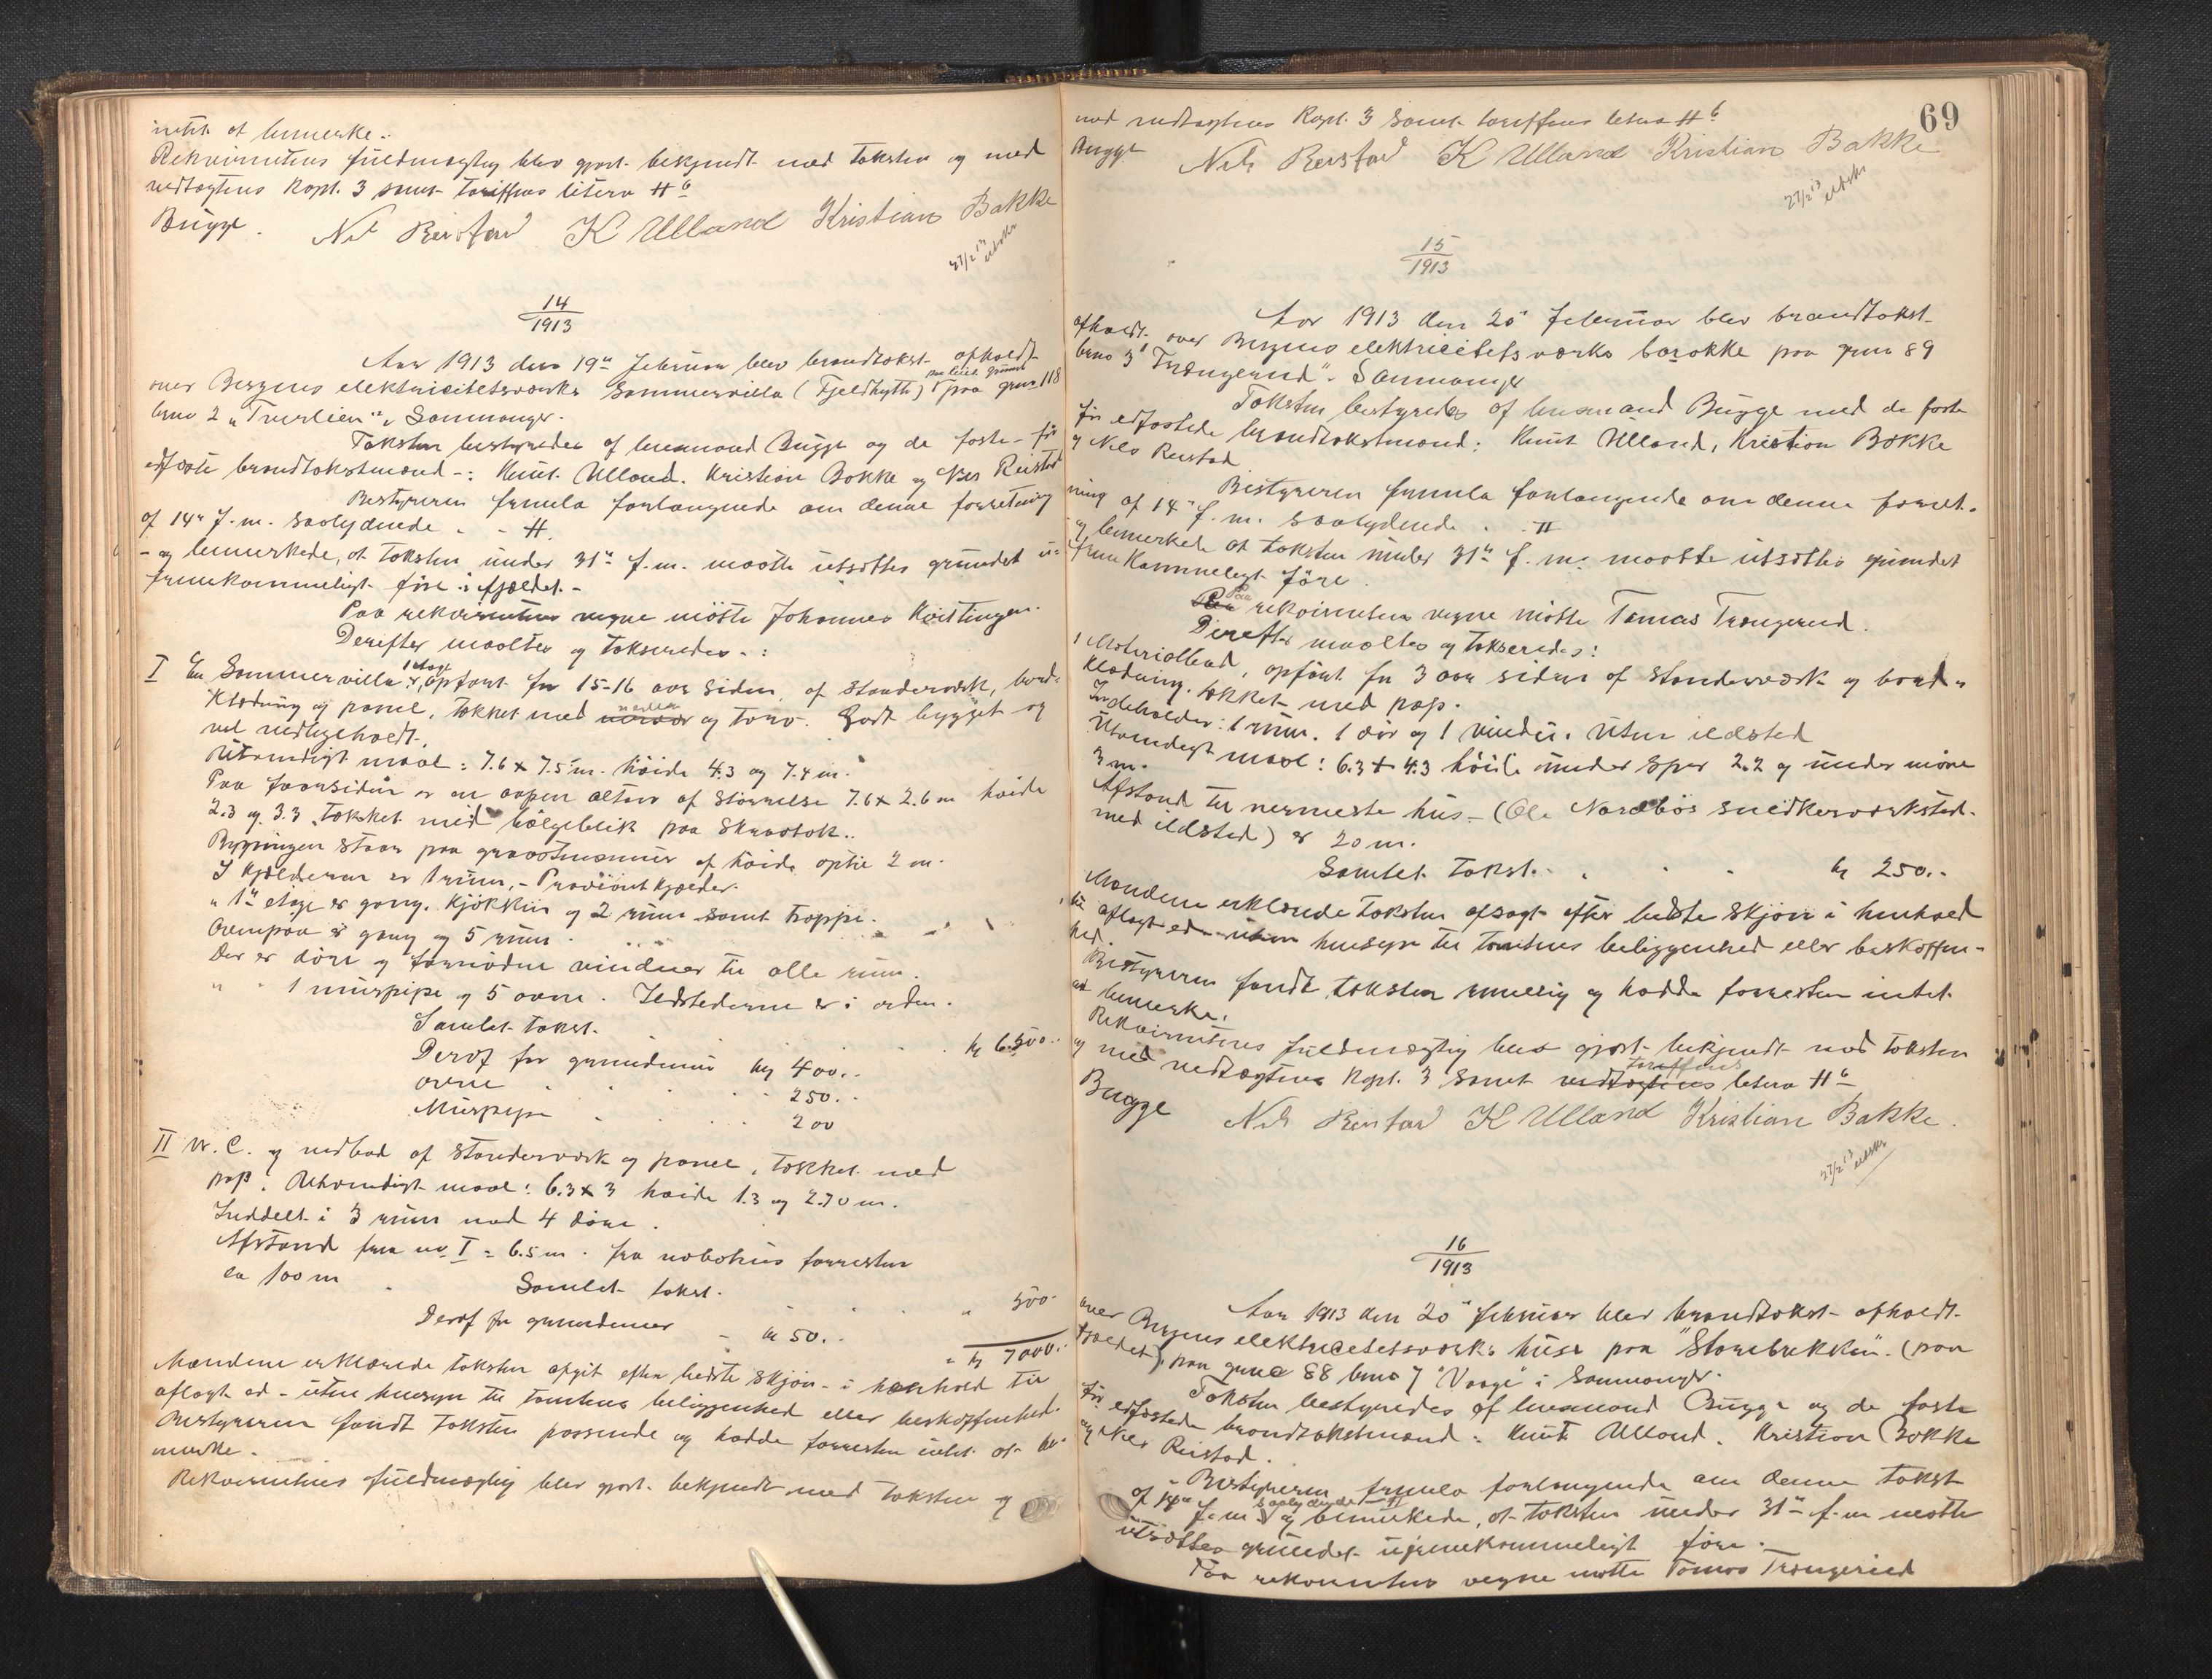 intet at bemerke.
Rekvirentens fuldmægtig blev gjort bekjendt med taksten og med
vedtægtens Kapt. 3 samt tariffens litera H 6
Bugge. Nils Reistad K Ulland Kristian Bakke
27/2 13 utskr
14
1913
Aar 1913 den 19de Februar blev brandtakst afholdt
over Bergens elektricitetsværks Sommervilla (Fjeldhytte) paa leiet grund paa gnr 118
brno 2 "Tverlien" i Samnanger.
Taksten bestyredes af lensmand Bugge og de faste - før
edfæste brandtakstmænd -: Knut Ulland. Kristian Bakke og Nils Reistad
Bestyreren fremla forlangende om denne forretning
af 14de f.m. saalydende - - H.
- og bemerkede, at taksten under 31te f.m. maatte utsættes grundet u-
fremkommeligt føre i fjeldet. -
Paa rekvirentens vegne møtte Johannes
Derefter maaltes og takseredes -:
I En Sommervilla 1 etage, opført for 15-16 aar siden, af Standerværk, bord-
klædning og panel, tækket med næver og torv. Godt bygget og
vel vedligeholdt.
Utvendigt maal: 7.6 x 7.5 m. høide 4.3 og 7.4 m.
Paa forsiden er en aapen altan af størrelse 7.6 x 2.6 m høide
2.3 og 3.3, tækket med bølgeblik paa skraatak..
Bygningen staar paa graastensmur af høide optil 2 m.
I Kjelderen er 1 rum, - Proviantkjælder.
" 1te etage er gang, kjøkken og 2 rum samt trappe.
Ovenpaa er gang og 5 rum.
Der er døre og fornødne vinduer til alle rum.
" " 1 murpipe og 5 ovne. Ildstederne er i orden.
Samlet takst. kr 6.500..
Deraf for grundmur kr 400..
ovne 250..
Murpipe 200
II W.C. og vedbod af Standerværk og panel, tækket med
pap. Utvendigt maal: 6.3 x 3 høide 1.3 og 2.70 m.
Inddelt i 3 rum med 4 døre.
Afstand fra no. I = 6.5 m. fra nabohus forresten
ca 100 m
Samlet takst. " 500.
Deraf for grundmur kr 50..
= kr 7000.-
Mændene erklærede taksten afgit efter bedste skjøn - i henhold til
aflagt ed - uten hensyn til tomtens beliggenhed eller beskaffenhed.
Bestyreren fandt taksten passende og hadde forresten intet at be-
merke.
Rekvirentens fuldmægtig blev gjort bekjendt med taksten og
69
med vedtægtens Kapt. 3 samt tariffens litra H 6
Bugge Nils Reistad K Ulland Kristian Bakke
27/2 13 utskr
15
1913
Aar 1913 den 20de Februar blev brandtakst
afholdt over Bergens elektricitetsværks barakke paa gnr 89
brno 3 "Trængereid" i Samnanger
Taksten bestyredes af lensmand Bugge med de faste
før edfæstede brandtakstmænd: Knut Ulland, Kristian Bakke
og Nils Reistad
Bestyreren fremla forlangende om denne forret-
ning af 14de f.m. saalydende . . H
og bemerkede at taksten under 31te f.m. maatte utsættes grundet
ufremkommeligt føre.
Paa rekvirentens vegne møtte Tomas Trængereid.
Derefter maaltes og takseredes:
1 Materialbod, opført for 3 aar siden af Standerværk og bord-
klædning. tækket med pap.
Indeholder: 1 rum. 1 dør og 1 vindu. Uten ildsted
Utvendigt maal: 6.3 x 4.3 høide under spær 2.2 og under møne
3 m.
Afstand til nermeste hus - (Ole Nordbøs snedkerværksted
med ildsted) er 20 m.
Samlet takst. . . kr 250.-
Mændene erklærede taksten afsagt efter bedste skjøn i henhold
til aflagt ed uten hensyn til tomtens beliggenhed eller beskaffen-
hed.
Bestyreren fandt taksten rimelig og hadde forresten intet
at bemerke.
Rekvirentens fuldmægtig blev gjort bekjendt med taksten
og med vedtægtens Kapt. 3 samt vedtægtens tariffens litera H 6
Bugge Nils Reistad K Ulland Kristian Bakke.
27/2 13 utskr
16
1913
Aar 1913 den 20de Februar blev brandtakst afholdt
over Bergens elektricitetsværks huse paa "Storebrekken". (paa
fjældet), paa gno 88 brno 7 "Vaage" i Samnanger.
Taksten bestyredes af lensmand Bugge og de faste
før edfæstede brandtakstmænd: Knut Ulland. Kristian Bakke
og Nils Reistad.
Bestyreren fremla forlangende om denne takst
af 14de f.m. saalydende H og bemerkede, at taksten under 31te f.m maatte
utsættes grundet ufremkommeligt føre.
Paa rekvirentens vegne møtte Tomas Trængereid